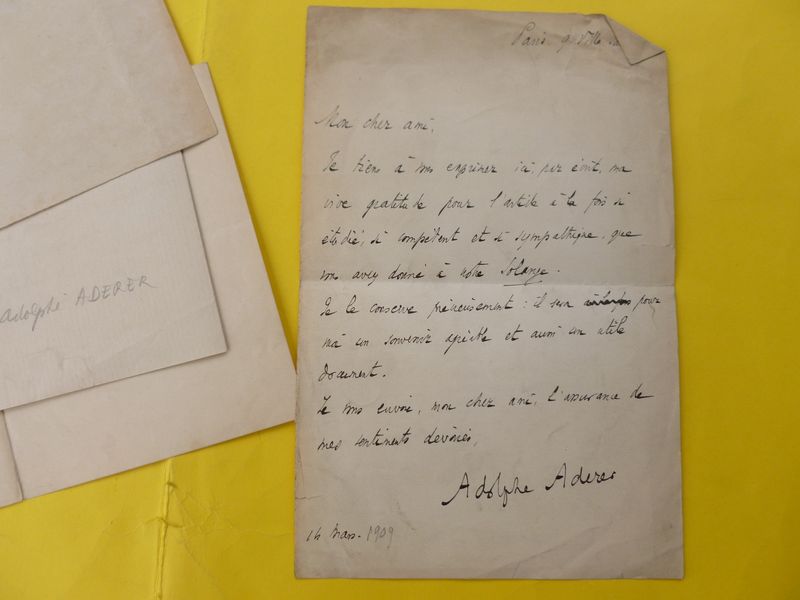 Paris 9
Mon cher ami,
Je tiens à vous exprimer ici, par écrit, ma
vive gratitude pour l'article à la fois si
étudié, si compétent et si sympathique, que
vous avez donné à notre Solange.
Je le conserve précieusement : il sera pour
moi un souvenir agréable et aussi un utile
document.
Je vous envoie, mon cher ami, l'assurance de
mes sentiments dévoués,
Adolphe Aderer
14 Mars. 1909
Adolphe ADERER